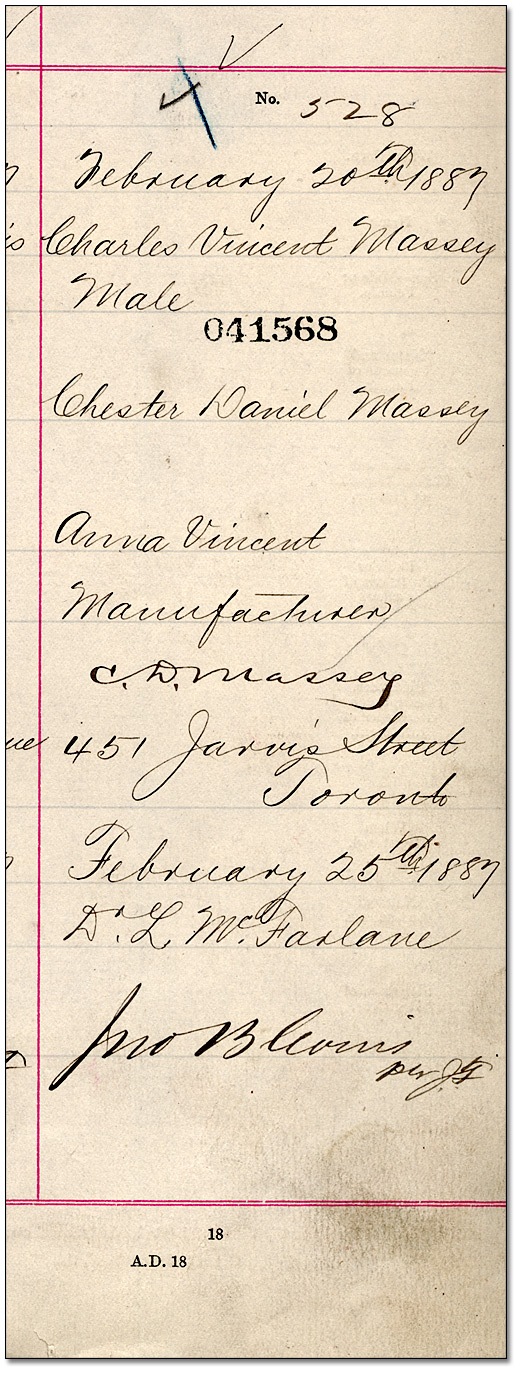 No. 528
February 20th 1887
Charles Vincent Massey
Male
041568
Chester Daniel Massey
Anna Vincent
Manufacturer
C. D. Massey
451 Jarvis Street
Toronto
February 25th 1887
Dr. L. McFarlane
Jno Blevins
per
18
A.D. 18